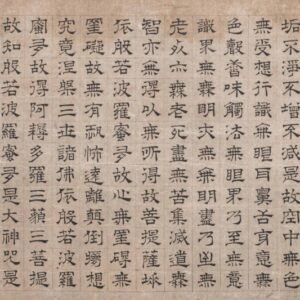 垢不淨不增不減是故空中無色
無受想行識無眼耳鼻舌身意無
色聲香味觸法無眼界乃至無意
識界無無明亦無無明盡乃至無
老死亦無老死盡無苦集滅道無
智亦無得以無所得故菩提薩埵
依般若波羅蜜多故心無罣礙無
罣礙故無有恐怖遠離顛倒夢想
究竟涅槃三世諸佛依般若波羅
蜜多故得阿耨多羅三藐三菩提
故知般若波羅蜜多是大神咒是